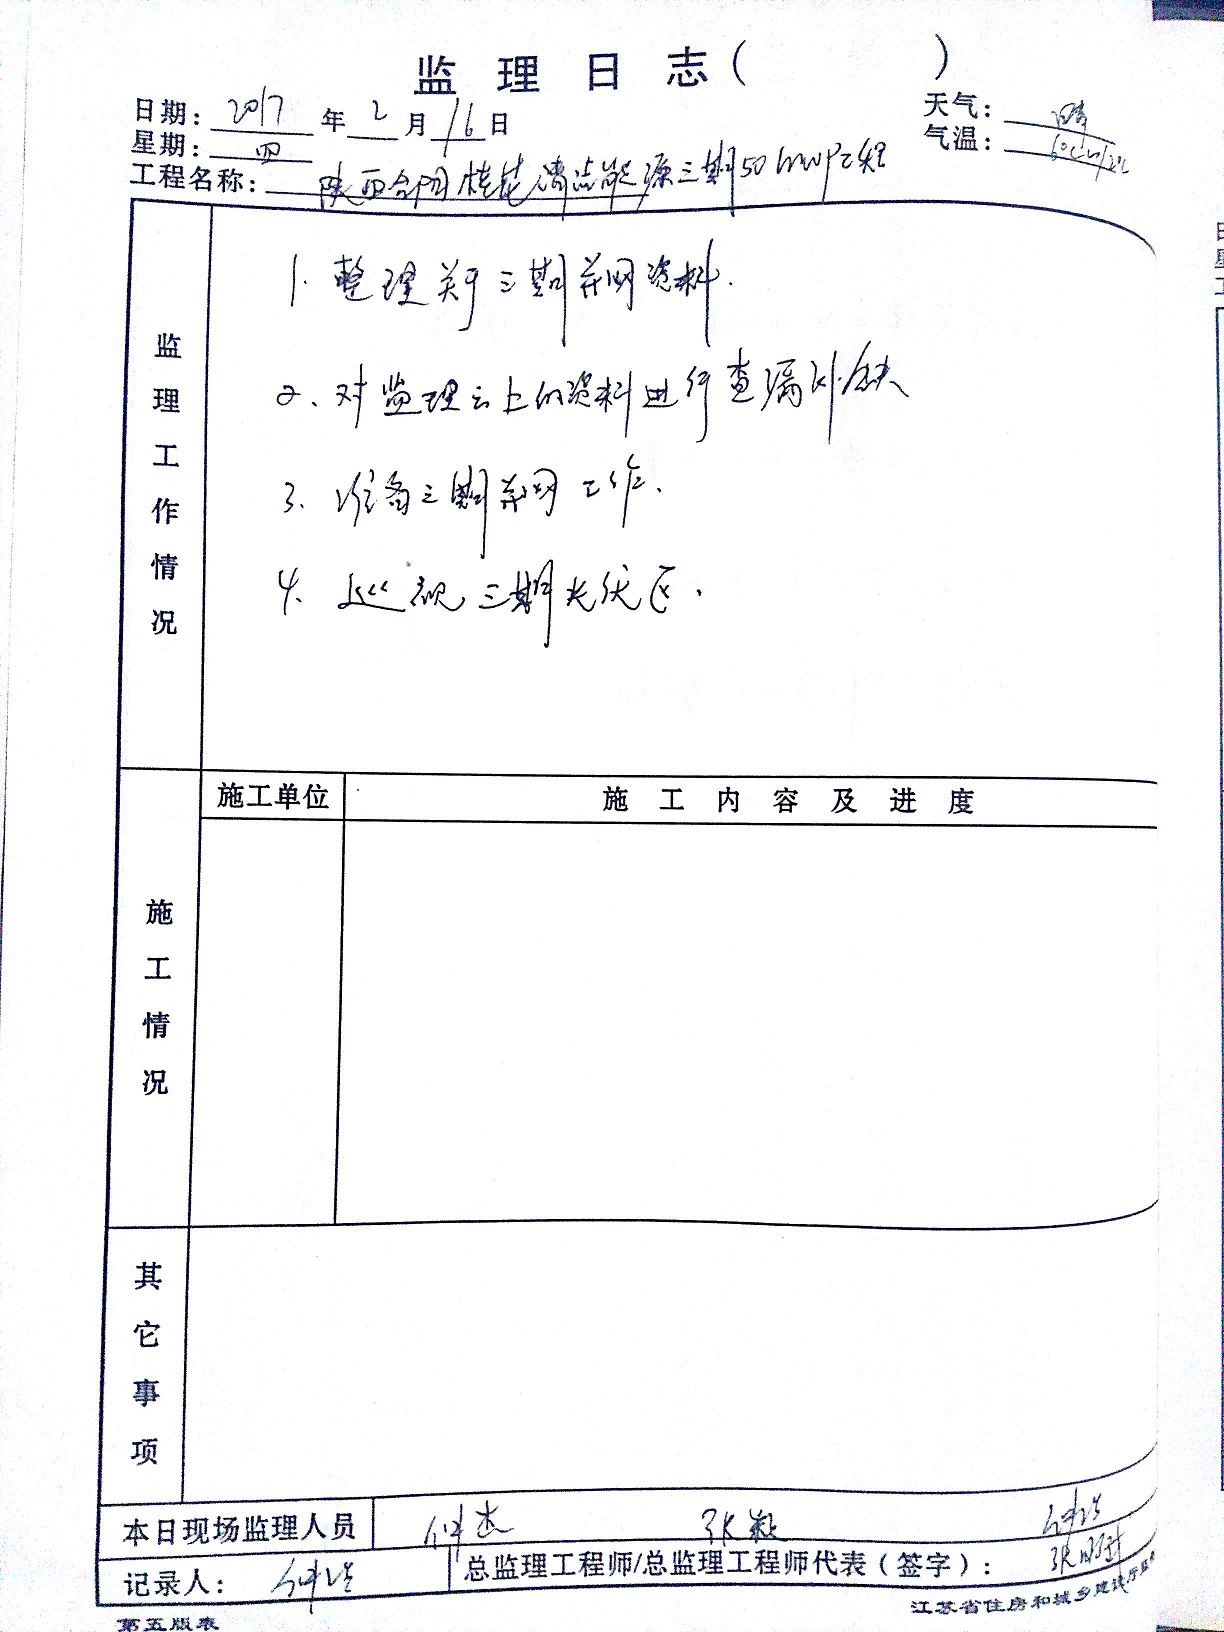 监 理 日 志（ ）
日期：2017年2月16日
天气：晴
星期：四
气温：
工程名称：陕西合阳桂花清洁能源三期50MWP工程
监理工作情况
1. 整理关于三期并网资料.
2、对监理云上的资料进行查漏补缺
3、准备三期并网工作.
4、巡视三期光伏区.
施工情况
施工单位
施 工 内 容 及 进 度
其它事项
本日现场监理人员
记录人：
总监理工程师/总监理工程师代表（签字）：
第五版表
江苏省住房和城乡建设厅监